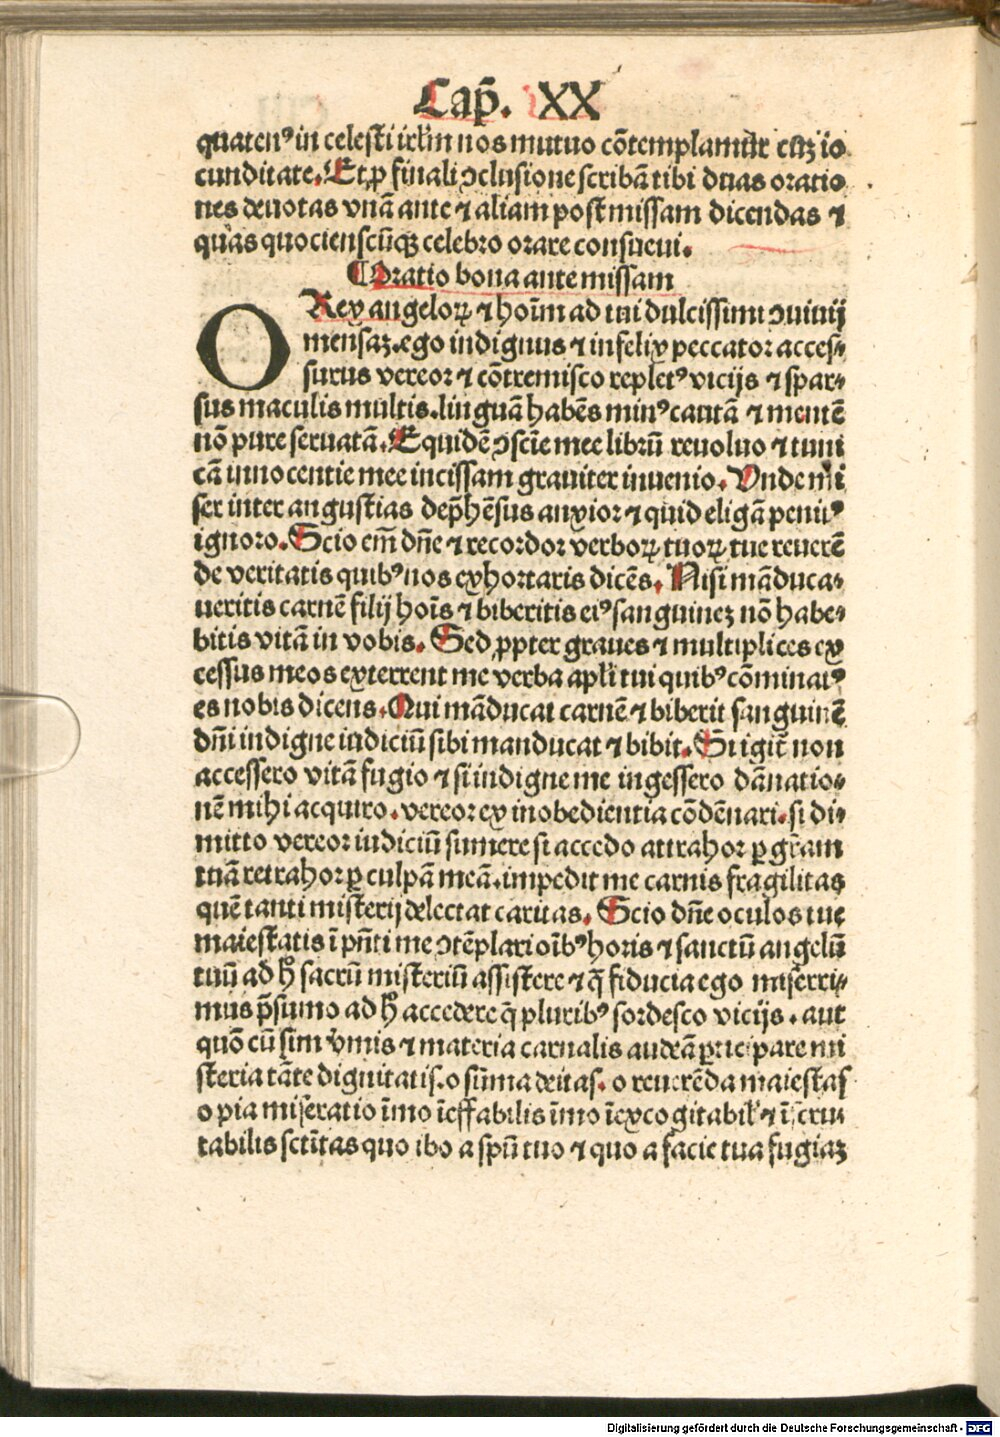 Cap̃. XX
quatenꝰ in celesti irl̃m nos mutuo cõtemplamur cuꝫ io
cunditate. Et ꝓ finali ꝯclusione scribã tibi duas oratio
nes deuotas vnã ante ⁊ aliam post missam dicendas ⁊
quas quocienscũqꝫ celebro orare consueui.
¶ Oratio bona ante missam
O Rex angeloꝝ ⁊ hoĩm ad tui dulcissimi ꝯuiuij
mensaꝫ. ego indignus ⁊ infelix peccator acces⸗
surus vereor ⁊ cõtremisco repletꝰ vicijs ⁊ spar⸗
sus maculis multis. linguã habẽs minꝰ cautã ⁊ mentẽ
nõ pure seruatã. Equidẽ ꝯscĩe mee librũ reuoluo ⁊ tuni
cã innocentie mee incissam grauiter inuenio. Vnde mi
ser inter angustias dep̃hẽsus anxior ⁊ quid eligã penitꝰ
ignoro. Scio em̃ dñe ⁊ recordor verboꝝ tuoꝝ tue reuerẽ
de veritatis quibꝰ nos exhortaris dicẽs. Nisi mãduca⸗
ueritis carnẽ filij hoĩs ⁊ biberitis eiꝰ sanguineꝫ nõ habe⸗
bitis vitã in vobis. Sed ꝓpter graues ⁊ multiplices ex
cessus meos exterrent me verba apl̃i tui quibꝰ cõminatꝰ
es nobis dicens. Qui mãducat carnẽ ⁊ biberit sanguinẽ
dñi indigne iudiciũ sibi manducat ⁊ bibit. Si igit̃ non
accessero vitã fugio ⁊ si indigne me ingessero dãnatio⸗
nẽ mihi acquiro. vereor ex inobedientia cõdẽnari. si di⸗
mitto vereor iudiciũ sumere si accedo attrahor ꝑ gr̃am
tuã retrahor ꝑ culpã meã. impedit me carnis fragilitas
quẽ tanti misterij delectat caritas. Scio dñe oculos tue
maiestatis ĩ pñti me ꝯtẽplari oĩbꝰ horis ⁊ sanctũ angelũ
tuũ ad h̊ sacrũ misteriũ assistere ⁊ q̃ fiducia ego miserri⸗
mus p̃sumo ad h̊ accedere q̃ pluribꝰ sordesco vicijs. aut
quõ cũ sim v̓mis ⁊ materia carnalis audeã ꝑticipare mi
steria tãte dignitatis. o sũma deitas. o reuerẽda maiestas
o pia miseratio ĩmo ĩeffabilis ĩmo ĩexcogitabil̃ ⁊ ĩscru
tabilis sctĩtas quo ibo a spũ tuo ⁊ quo a facie tua fugiaꝫ
Digitalisierung gefördert durch die Deutsche Forschungsgemeinschaft - DFG